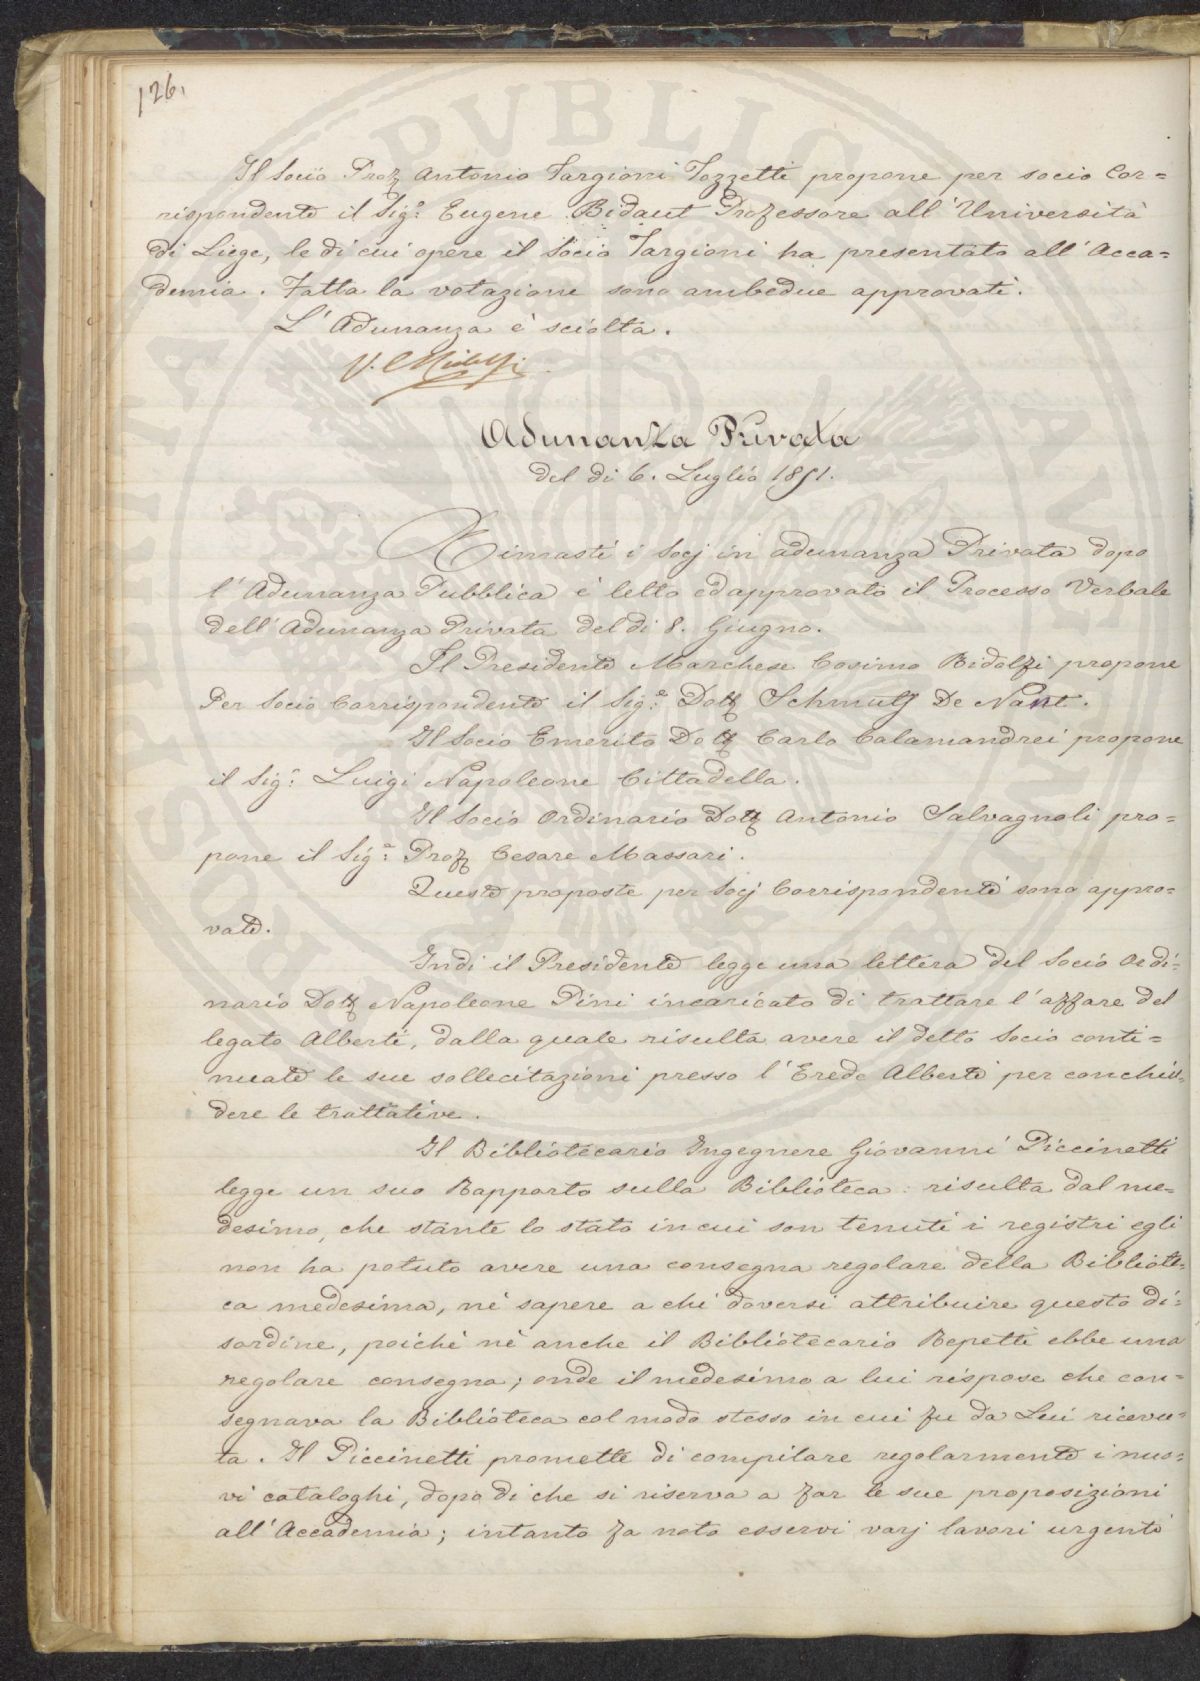 126.
Il Socio Prof Antonio Targioni Tozzetti propone per socio Cor=
rispondente il Sig.e Eugene Bidaut Professore all'Università
di Liege, le di cui opere il Socio Targioni ha presentato all'Acca=
demia. Fatta la votazione sono ambedue approvati.
L'Adunanza è sciolta.
Adunanza Privata
del di 6. Luglio 1851.
Rimasti i Socj in adunanza Privata dopo
l'Adunanza Pubblica è letto ed approvato il Processo Verbale
dell'Adunanza Privata del di 8. Giugno.
Il Presidente Marchese Cosimo Ridolfi propone
Per Socio Corrispondente il Sig.e Dott Schmutz De
Il Socio Emerito Dott Carlo Calamandrei propone
il Sig.e Luigi Napoleone Cittadella.
Il Socio Ordinario Dott Antonio Salvagnoli pro=
pone il Sig.e Prof Cesare Massari.
Queste proposte per Socj Corrispondenti sono appro=
vate.
Indi il Presidente legge una lettera del Socio Ordi=
nario Dott Napoleone Pini incaricato di trattare l'affare del
legato Alberti, dalla quale risulta avere il detto Socio conti=
nuate le sue sollecitazioni presso l'Erede Alberti per conchiu=
dere le trattative.
Il Bibliotecario Ingegnere Giovanni Piccinetti
legge un suo Rapporto sulla Biblioteca: risulta dal me=
desimo, che stante lo stato in cui son tenuti i registri egli
non ha potuto avere una consegna regolare della Bibliote=
ca medesima, nè sapere a chi doversi attribuire questo di=
sordine, poichè nè anche il Bibliotecario Repetti ebbe una
regolare consegna; onde il medesimo a lui rispose che con=
segnava la Biblioteca col modo stesso in cui fu da Lui ricevu=
ta. Il Piccinetti promette di compilare regolarmente i nuo=
vi cataloghi, dopo di che si riserva a far le sue proposizioni
all'Accademia; intanto fa noto esservi varj lavori urgenti